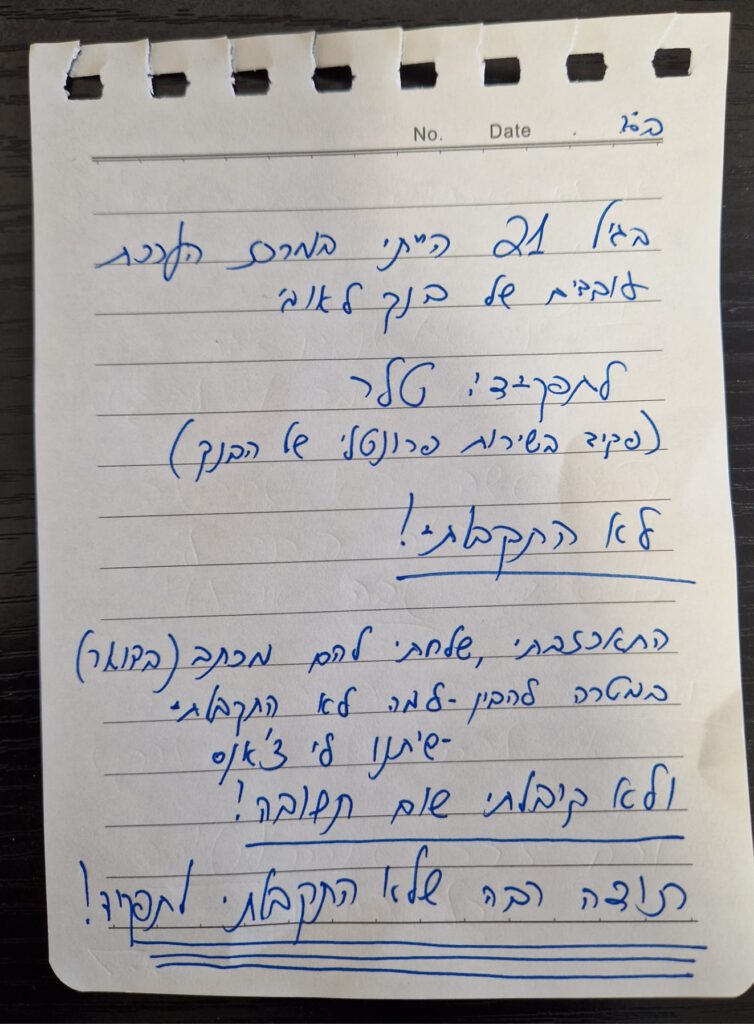 No. Date . בס"ד
בגיל 21 הייתי במרכז הערכת
עובדים של בנק לאומי
לתפקיד: טלר
(פקיד בשירות פרונטלי של הבנק)
לא התקבלתי!
התאכזבתי, שלחתי להם מכתב (בדואר)
במטרה להבין - למה לא התקבלתי
- שיתנו לי צ'אנס
ולא קיבלתי שום תשובה!
תודה רבה שלא התקבלתי לתפקיד!